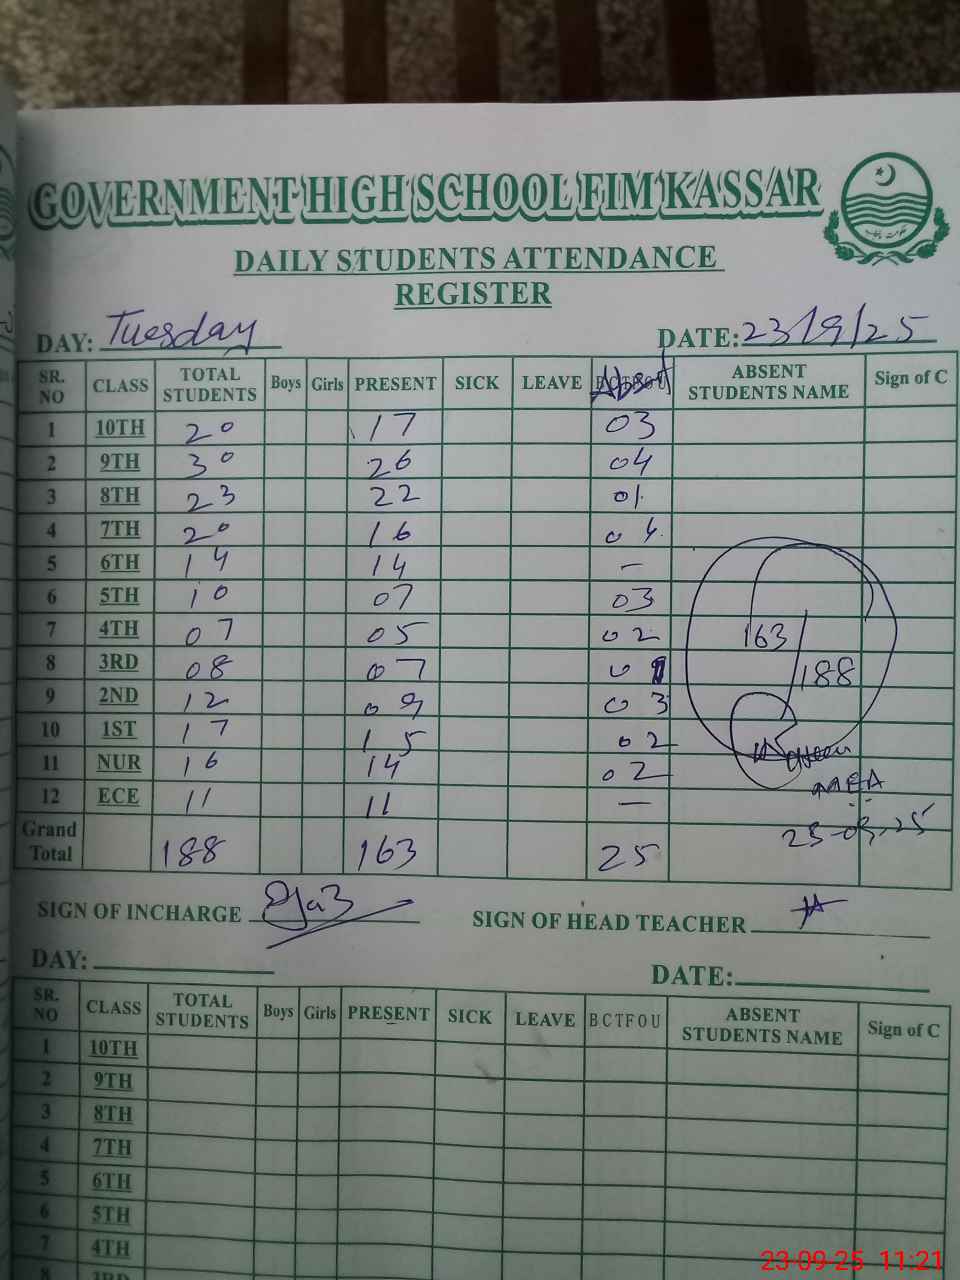 GOVERNMENT HIGH SCHOOL FIM KASSAR
DAILY STUDENTS ATTENDANCE
REGISTER
DAY: Tuesday DATE: 23/9/25
SR. NO CLASS TOTAL STUDENTS Boys Girls PRESENT SICK LEAVE Absent ABSENT STUDENTS NAME Sign of C
1 10TH 20 17 03
2 9TH 30 26 04
3 8TH 23 22 01
4 7TH 20 16 04
5 6TH 14 14 -
6 5TH 10 07 03
7 4TH 07 05 02
8 3RD 08 07 01
9 2ND 12 09 03
10 1ST 17 15 02
11 NUR 16 14 02
12 ECE 11 11 -
Grand Total 188 163 25
163/188
MEA
23-09-25
SIGN OF INCHARGE
SIGN OF HEAD TEACHER
DAY: DATE:
SR. NO CLASS TOTAL STUDENTS Boys Girls PRESENT SICK LEAVE BCTFOU ABSENT STUDENTS NAME Sign of C
1 10TH
2 9TH
3 8TH
4 7TH
5 6TH
6 5TH
7 4TH
8 3RD
23-09-25 11:21